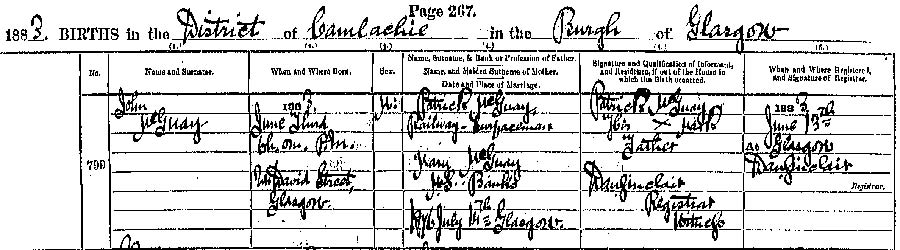 Page 267.
1883. BIRTHS in the District of Camlachie in the Burgh of Glasgow
(1.) (2.) (3.) (4.) (5.) (6.)
No.
Name and Surname.
When and Where Born.
Sex.
Name, Surname, & Rank or Profession of Father.
Name, and Maiden Surname of Mother.
Date and Place of Marriage.
Signature and Qualification of Informant,
and Residence, if out of the House in
which the Birth occurred.
When and Where Registered,
and Signature of Registrar.
799
John
McGuay
1883.
June Third
P.M.
David Street,
Glasgow.
M.
Patrick McGuay,
Railway Surfaceman
Mary McGuay
M.S. Banks
July Glasgow.
Patrick McGuay
his x mark
Father
Sinclair
Registrar
Witness
1883
June 13th
At Glasgow
Sinclair
Registrar.